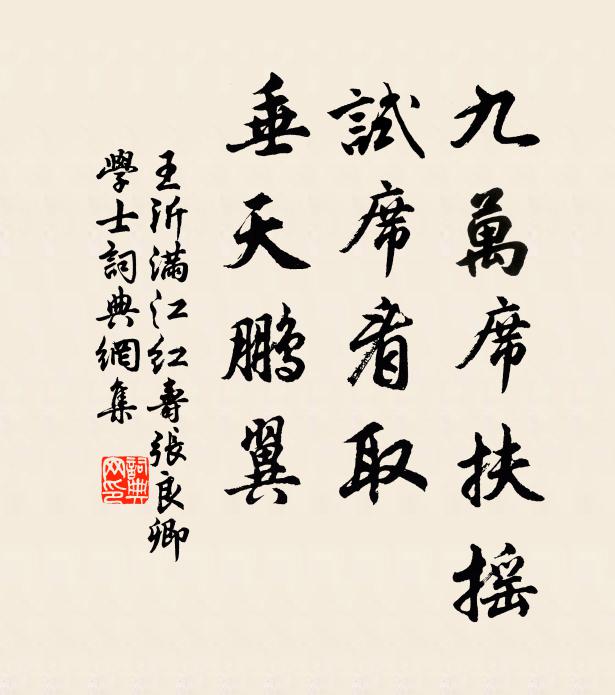 九萬席扶搖
試席看取
垂天鵬翼
王沂滿江紅壽張良卿
學士詞典網集
詞典
网印